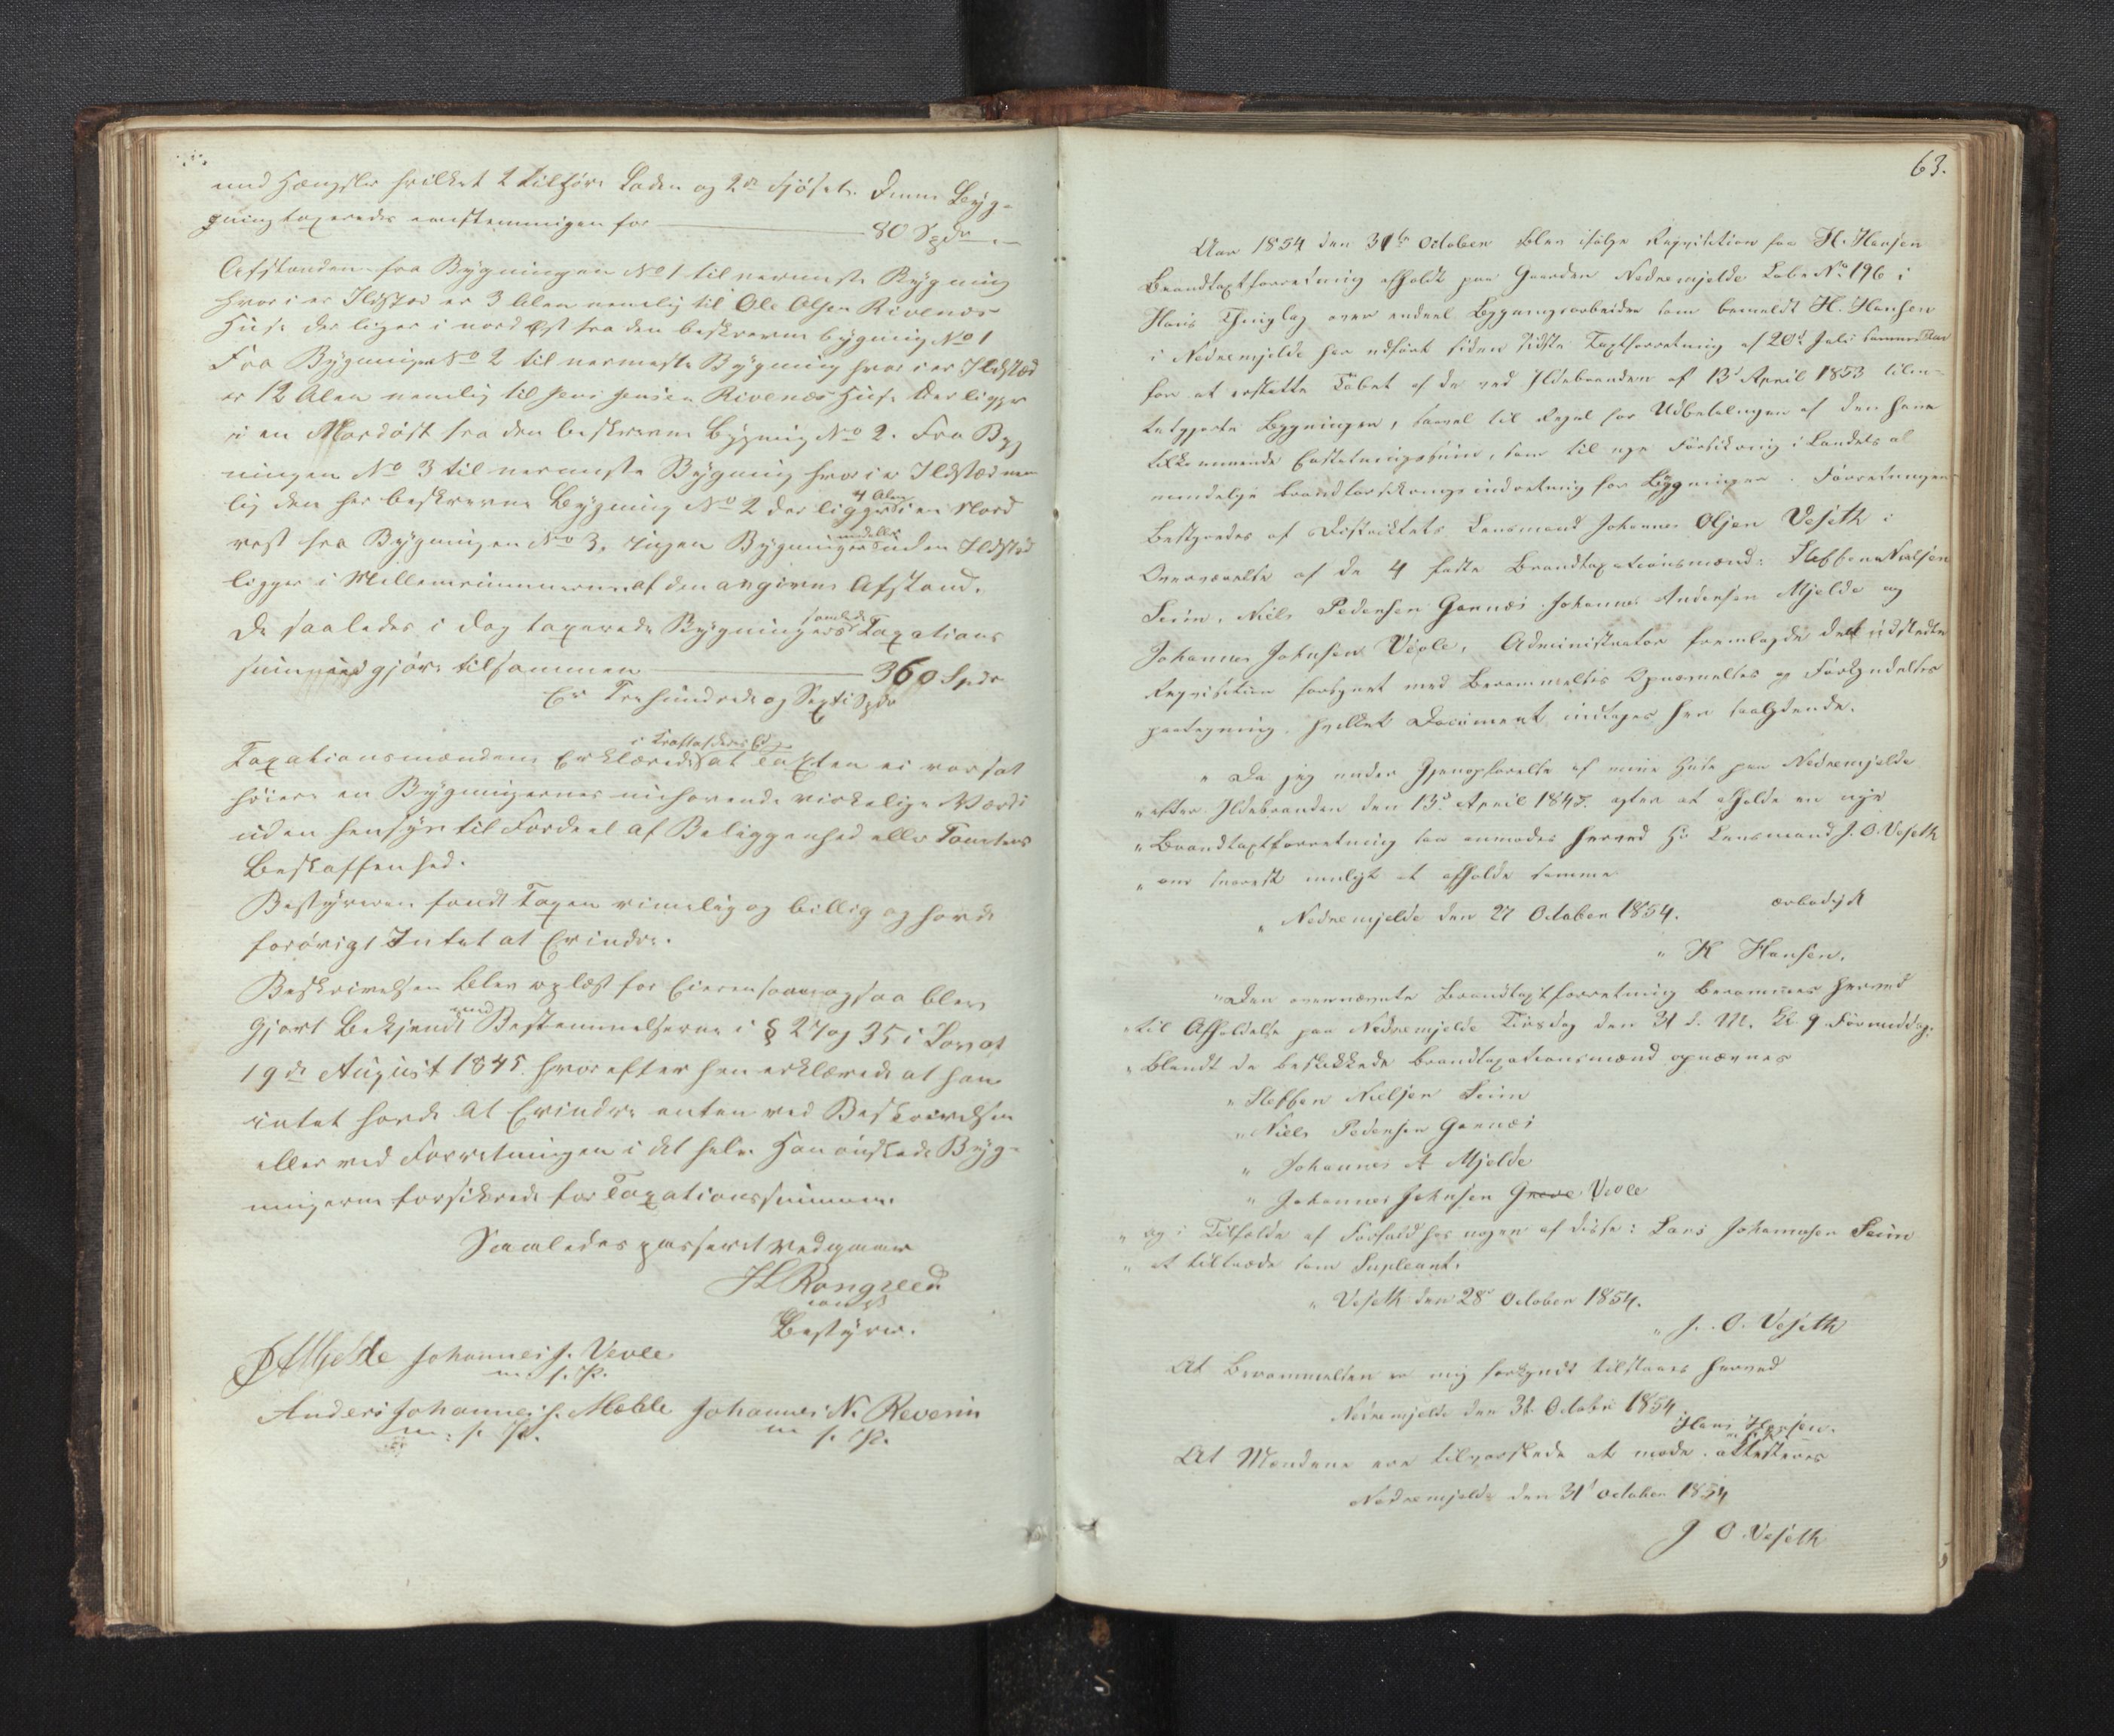 med Hængsler hvilket 1 tilhører Laden og 2de Fjöset. Denne Byg-
gning taxeredes eenstemmigen for 80 Spdr
Afstanden fra Bygningen No 1 til nærmeste Bygning
hvor i er Ildsted er 3 Alen nemlig til Ole Olsen Rivenæs
Huse der liger i nord Øst fra den beskrevne bygning No 1
Fra Bygningen No 2 til nærmeste Bygning hvor i er Ildsted
er 12 Alen nemlig til Jens Jensen Rivenæs Huse der ligger
i en Nordöst fra den beskrevne bygning No 2. Fra Byg
ningen No 3 til nærmeste Bygning hvor i er Ildsted nem
lig den her beskrevne Bygning No 2 der ligger 4 Alen i en Nord
vest fra Bygningen No 3, Ingen Bygninger uden Ildsted
ligger i Mellemrummene af den angivne Afstand.
De saaledes i dag taxerede Bygningers samlede Taxations
summer gjöre tilsammen 360 Spdr
Er Trehundrede og Sexti Spdr
Taxationsmændene Erklærede i Kraft af deres Ed at Taxten ei var sat
höiere en Bygningernes nuhavende virkelige Værdi
uden hensyn til Fordeel af Beliggenhed eller Tomtens
Beskaffenhed.
Bestyreren fandt Taxen rimelig og billig og havde
forövrigt Intet at Erindre.
Beskrivelsen blev oplæst for Eieren som ogsaa blev
gjort Bekjendt med Bestemmelserne i § 27 og 35 i Lov af
19de August 1845. hvorefter han erklærede at han
intet havde at Erindre enten ved Beskrivelsen
eller ved Forretningen i det hele. Han önskede Byg-
ningerne forsikrede for Taxationssummen.
Saaledes passeret vedgaaer
Rongved
const
Bestyrer.
Mjelde Johannes J. Vevle
m. f. P.
Anders Johannes J. Mæhle Johannes N. Reverin
m. f. P. m f. P.
63.
Aar 1854 den 31te October blev ifølge Requisition fra H. Hansen
Brandtaxtforretning afholdt paa Gaarden Nedremjelde Løbe No 196 i
Hans Thinglag over endeel Bygningsarbeider som bemeldte H. Hansen
i Nedremjelde har udført siden sidste Taxtforretning af 20d Juli samme Aar
for at erstatte Tabet af de ved Ildebranden af 13d April 1853 tilin-
tetgjorte Bygninger, saavel til Regel for Udbetalingen af den ham
tilkommende Erstatningssum, som til nye Forsikring i Landets al
mindelige Brandforsikringsindretning for Bygninger. Forretningen
bestyredes af Districtets Lensmand Johannes Olsen Veseth i
Overværelse af de 4 faste Brandtaxationsmænd: Steffen Nielsen
Seim, Niels Pedersen Garnæs, Johannes Andersen Mjelde og
Johannes Johnsen Vevle. Administrator fremlagde den udstedte
Requisition forsynet med Berammelses Opnævnelses og Forkyndelses
paategning. hvilket Document indtages her saalydende.
" Da jeg under Gjenopførelse af mine Huse paa Nedremjelde
" efter Ildebranden den 13d April 1845. agter at afholde en nye
" Brandtaxtforretning saa anmodes herved Hr Lensmand J. O. Veseth
" om snarest muligt at afholde samme
" Nedremjelde den 27 October 1854. ærbødigst
" H Hansen.
" Den ovennævnte Brandtaxtforretning berammes herved
" til Afholdelse paa Nedremjelde Tirsdag den 31 d. M. Kl. 9 Formiddag:
" blandt de beskikkede Brandtaxationsmænd opnævnes
" Steffen Nielsen Seim
" Niels Pedersen Garnæs
" Johannes A Mjelde
" Johannes Johnsen Vevle
" og i Tilfælde af Forfald hos nogen af disse: Lars Johannesen Seim
" at tiltræde som Supleant.
" Veseth den 28d October 1854.
" J. O. Veseth
At Berammelsen er mig forkyndt tilstaaes herved
Nedremjelde den 31 Octobr 1854
Hans Hansen.
At Mændene ere tilvarslede at møde attesteres
Nedremjelde den 31d October 1854
J O. Veseth